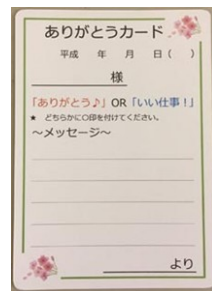 ありがとうカード
平成　年　月　日（　）
様
「ありがとう♪」OR「いい仕事！」
★ どちらかに○印を付けてください。
～メッセージ～
より